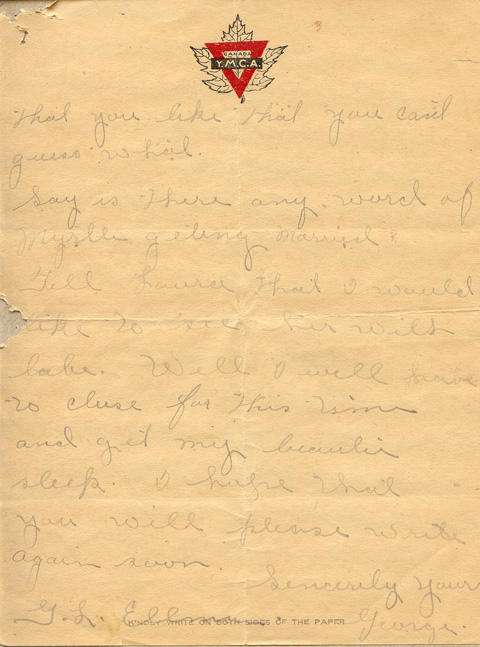 CANADA
Y.M.C.A.
that you like that you can't
guess what.
Say is there any word of
Myrtle geting Married?
Tell Laura that I would
like to see her with
babe. Well I will have
to cluse for this time
and get my beautie
sleep. I hope that
you will please write
again soon.
Sencerily Yours
G.L. George.
KINDLY WRITE ON BOTH SIDES OF THE PAPER